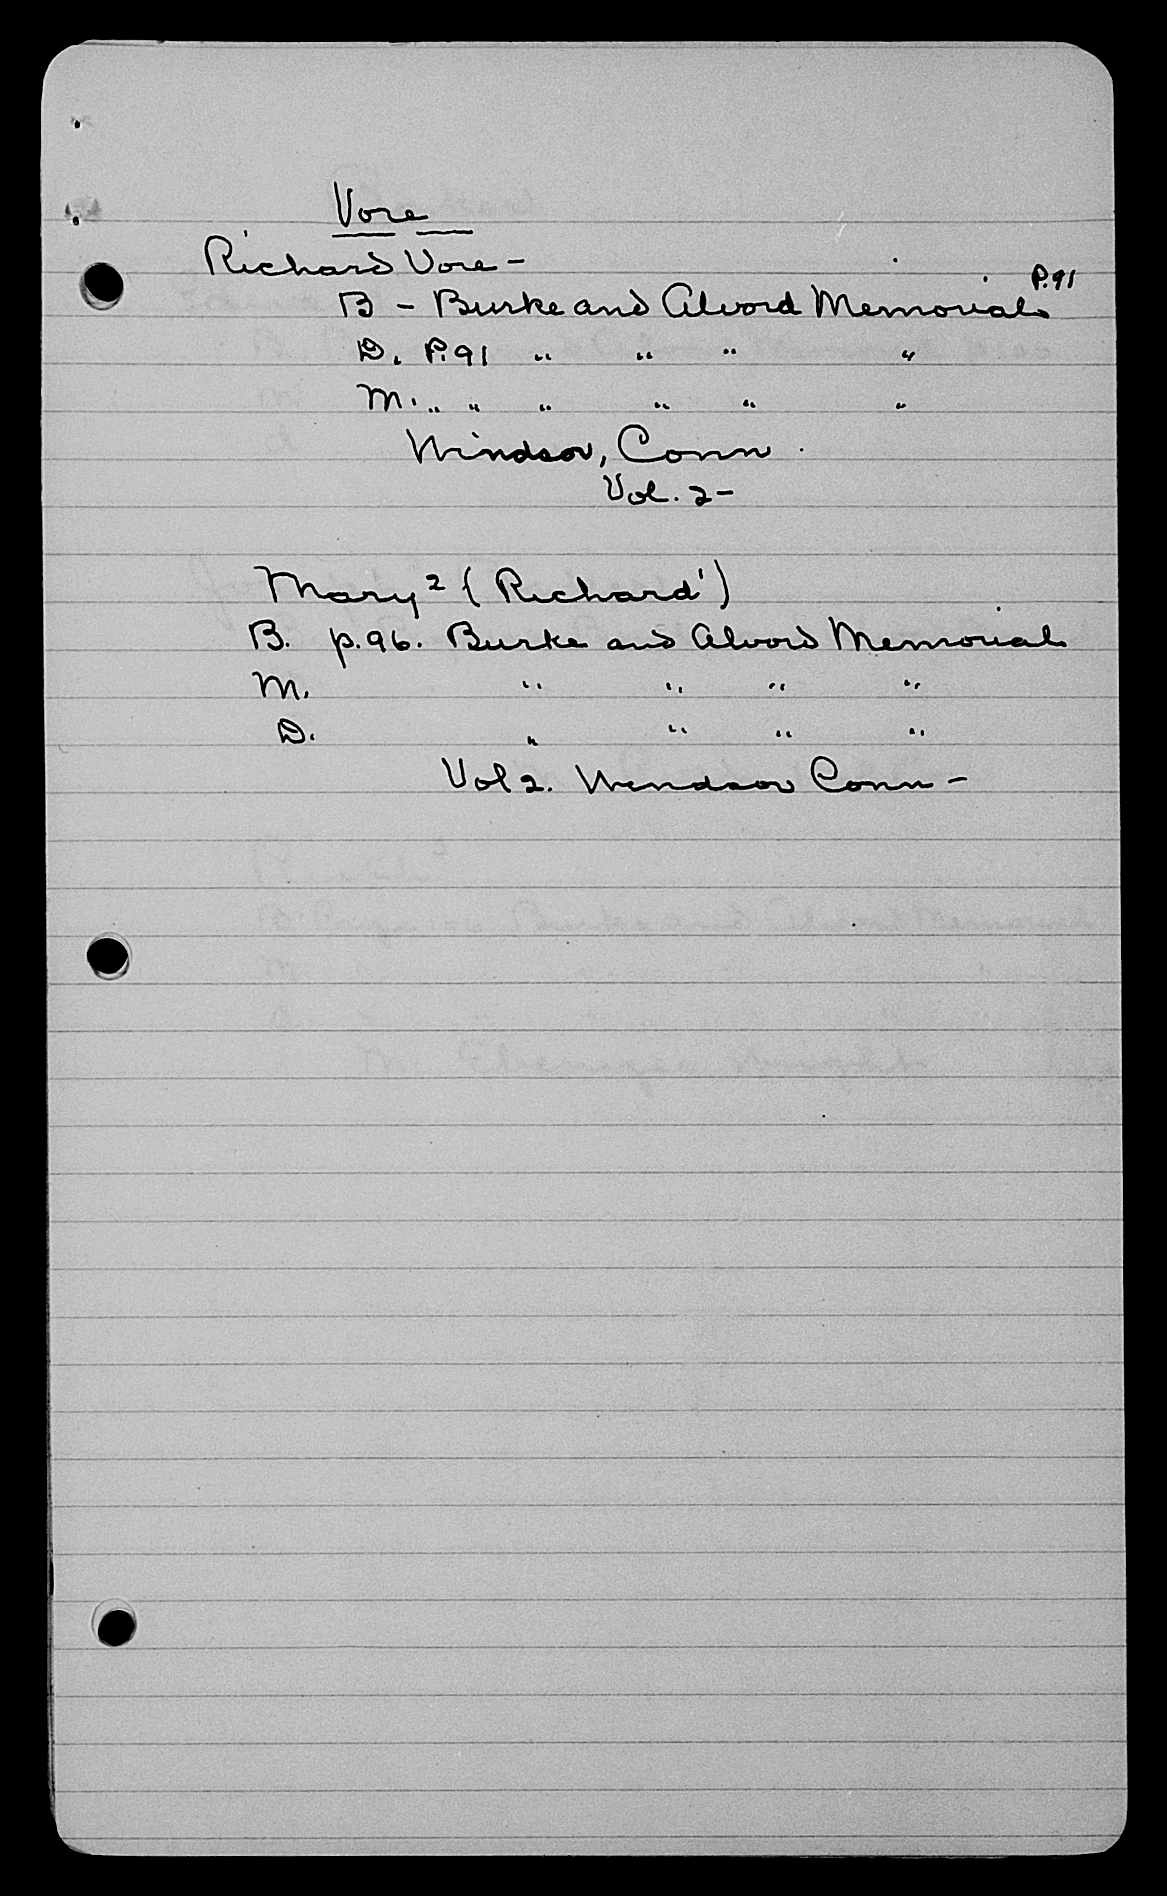 Vore
Richard Vore -
B - Burke and Alvord Memorials P.91
D. P.91 " " " "
M. " " " " " "
Windsor, Conn.
Vol. 2 -
Mary² (Richard¹)
B. p.96. Burke and Alvord Memorial
M. " " " "
D. " " " "
Vol 2. Windsor Conn -